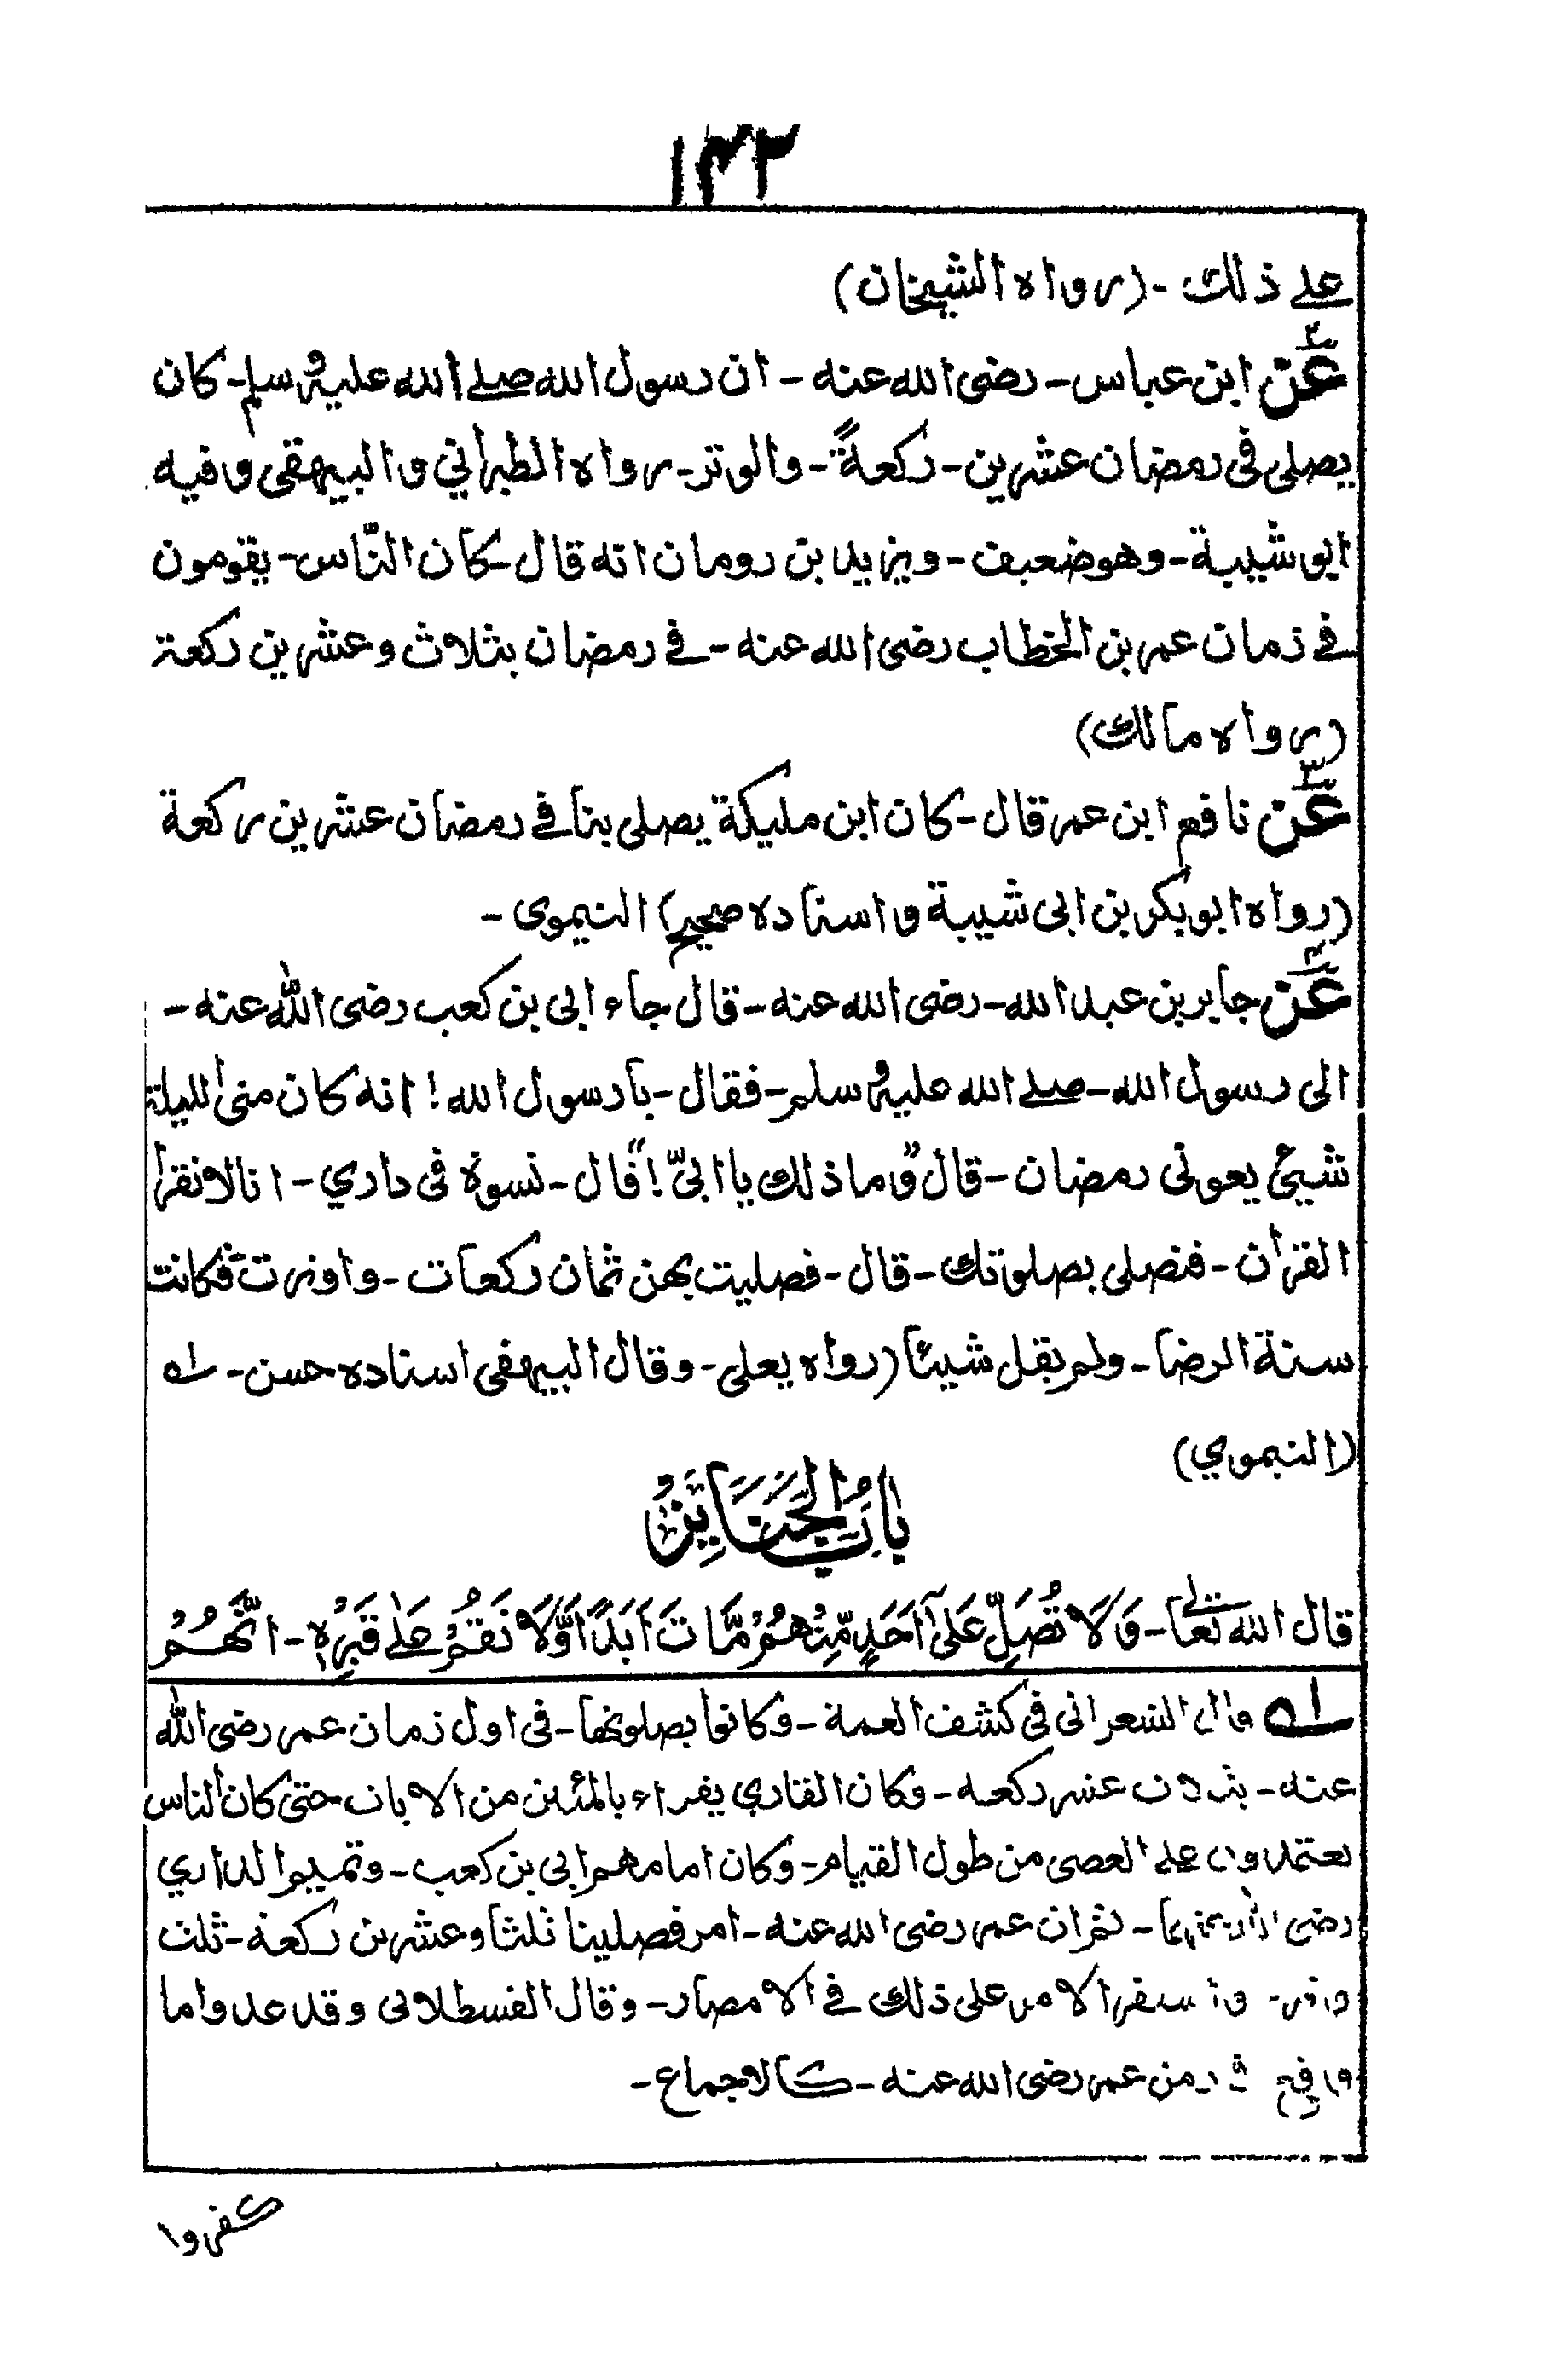 ١٣٢
علے ذلك - (رواه الشيخان)
عن ابن عباس - رضى الله عنه - ان رسول الله صلے الله عليه وسلم - كان
يصلى فى رمضان عشرين - ركعةً - والوتر - رواه الطبرانى والبيهقى وفيه
ابو شيبة - وهو ضعيف - ويزيد بن رومان انه قال - كان النّاس - يقومون
فى زمان عمر بن الخطاب رضى الله عنه - فى رمضان بثلاث وعشرين ركعة
(رواه مالك)
عن نافع ابن عمر قال - كان ابن مليكة يصلى بنا فى رمضان عشرين ركعة
(رواه ابو بكر بن ابى شيبة واسناده صحيح) النيموى -
عن جابر بن عبد الله - رضى الله عنه - قال جاء ابى بن كعب رضى الله عنه -
الى رسول الله - صلے الله عليه وسلم - فقال - يا رسول الله! انه كان منى الليلة
شيئ يعونى رمضان - قال "وما ذلك يا ابىّ!" قال - نسوة فى داري - انا لا نقرأ
القرأن - فنصلى بصلوتك - قال - فصليت بهن ثمان ركعات - واوترت فكانت
سنة الرضا - ولم يقل شيئا (رواه يعلى - وقال البيهقى اسناده حسن - له
(النيموي)
بَابُ الْجَنَايِزُ
قال الله تعالى - وَلَا تُصَلِّ عَلٰٓى اَحَدٍ مِّنْهُمْ مَّاتَ اَبَدًا وَّلَا تَقُمْ عَلٰى قَبْرِهٖ - اِنَّهُمْ
له قال الشعرانى فى كشف الغمة - وكانوا يصلونها - فى اول زمان عمر رضى الله
عنه - بثلاث عشر ركعه - وكان القاري يقراء بالمئين من الايات - حتى كان الناس
يعتمدون على العصى من طول القيام - وكان امامهم ابى بن كعب - وتميم الداري
رضى الله عنهما - ثم ان عمر رضى الله عنه - امر فصلينا ثلثا وعشرين ركعة - ثلث
وتر - واستقر الامر على ذلك فى الامصار - وقال القسطلانى وقد عدوا ما
وقع فى زمن عمر رضى الله عنه - كالاجماع -
كفروا